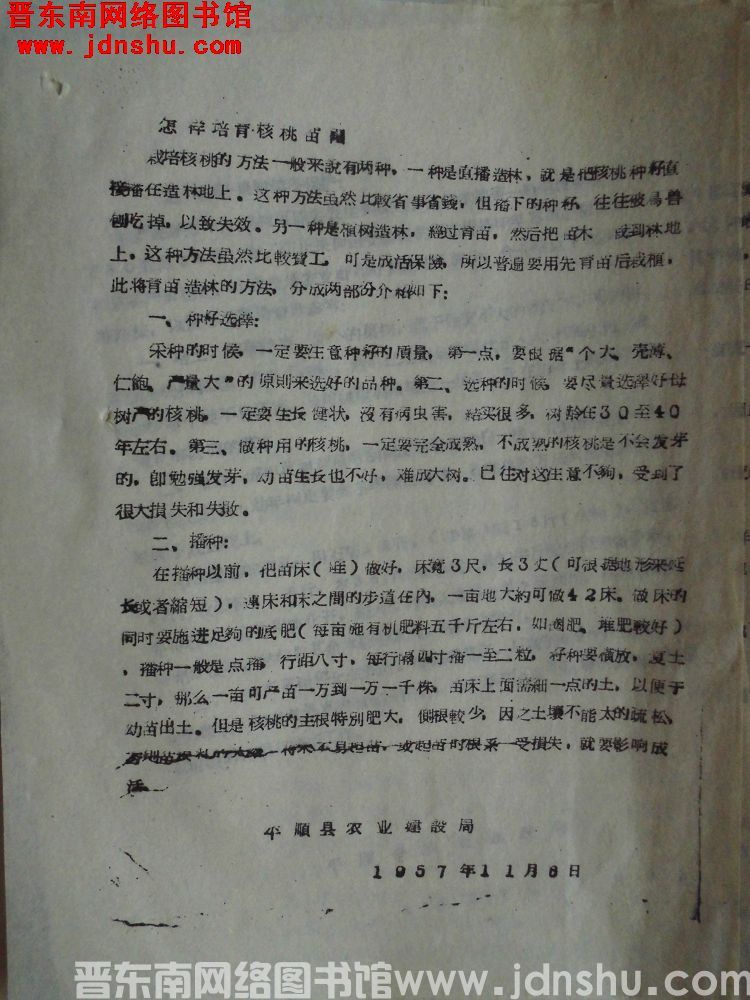 晋东南网络图书馆
www.jdnshu.com
怎样培育核桃苗
栽培核桃的方法一般来說有两种，一种是直播造林，就是把核桃种籽直
接播在造林地上。这种方法虽然比較省事省錢，但播下的种籽，往往被鳥兽
刨吃掉，以致失效。另一种是植树造林，經过育苗，然后把苗木 栽到林地
上，这种方法虽然比較費工，可是成活保險，所以普遍要用先育苗后栽植，
此将育苗造林的方法，分成两部份介紹如下：
一、种籽选择：
采种的时候，一定要注意种籽的質量，第一点，要根据“个大、壳薄、
仁飽、产量大”的原则来选好的品种。第二、选种的时候，要尽量选择好母
树产的核桃，一定要生长健状，沒有病虫害，結实很多，树龄在30至40
年左右。第三、做种用的核桃，一定要完全成熟，不成熟的核桃是不会发芽
的，卽勉强发芽，幼苗生长也不好，难成大树。已往对这注意不夠，受到了
很大損失和失敗。
二、播种：
在播种以前，把苗床（畦）做好，床寬3尺，长3丈（可根据地形来延
长或者縮短），連床和床之間的步道在內，一亩地大約可做42床。做床的
同时要施进足夠的底肥（每亩施有机肥料五千斤左右，如圈肥、堆肥較好）
，播种一般是点播 行距八寸，每行隔四寸播一至二粒，籽种要横放，复土
二寸，那么一亩可产苗一万到一万一千株，苗床上面需細一点的土，以便于
幼苗出土。但是核桃的主根特別肥大，側根較少，因之土壤不能太的疏松、
将来不易起苗，或起苗时根系一受損失，就要影响成
活。
平順县农业建設局
1957年11月8日
晋东南网络图书馆www.jdnshu.com